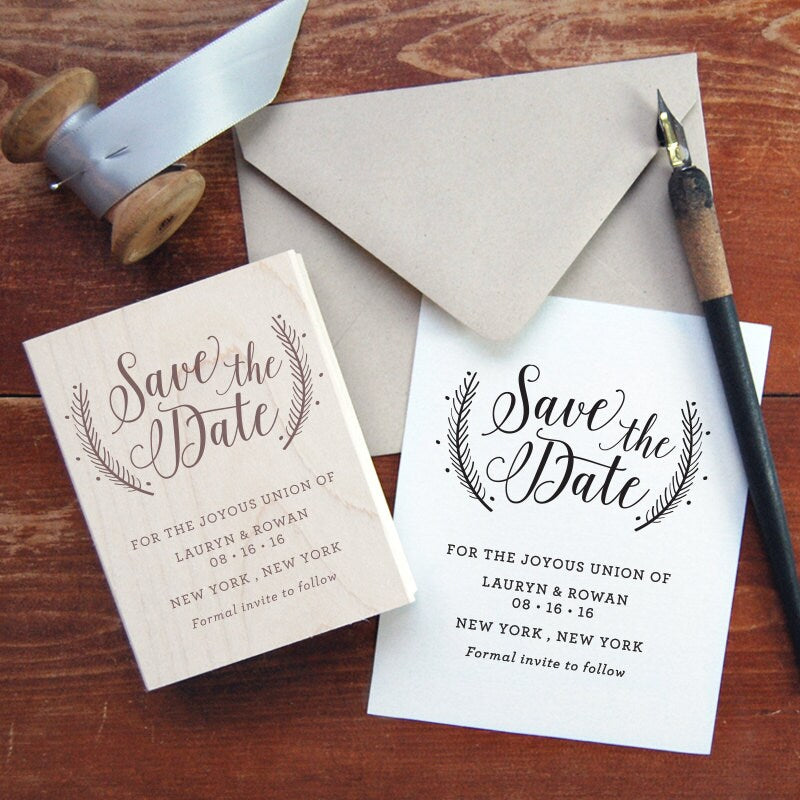 Save the
Date
FOR THE JOYOUS UNION OF
LAURYN & ROWAN
08 • 16 • 16
NEW YORK , NEW YORK
Formal invite to follow
Save the
Date
FOR THE JOYOUS UNION OF
LAURYN & ROWAN
08 • 16 • 16
NEW YORK , NEW YORK
Formal invite to follow